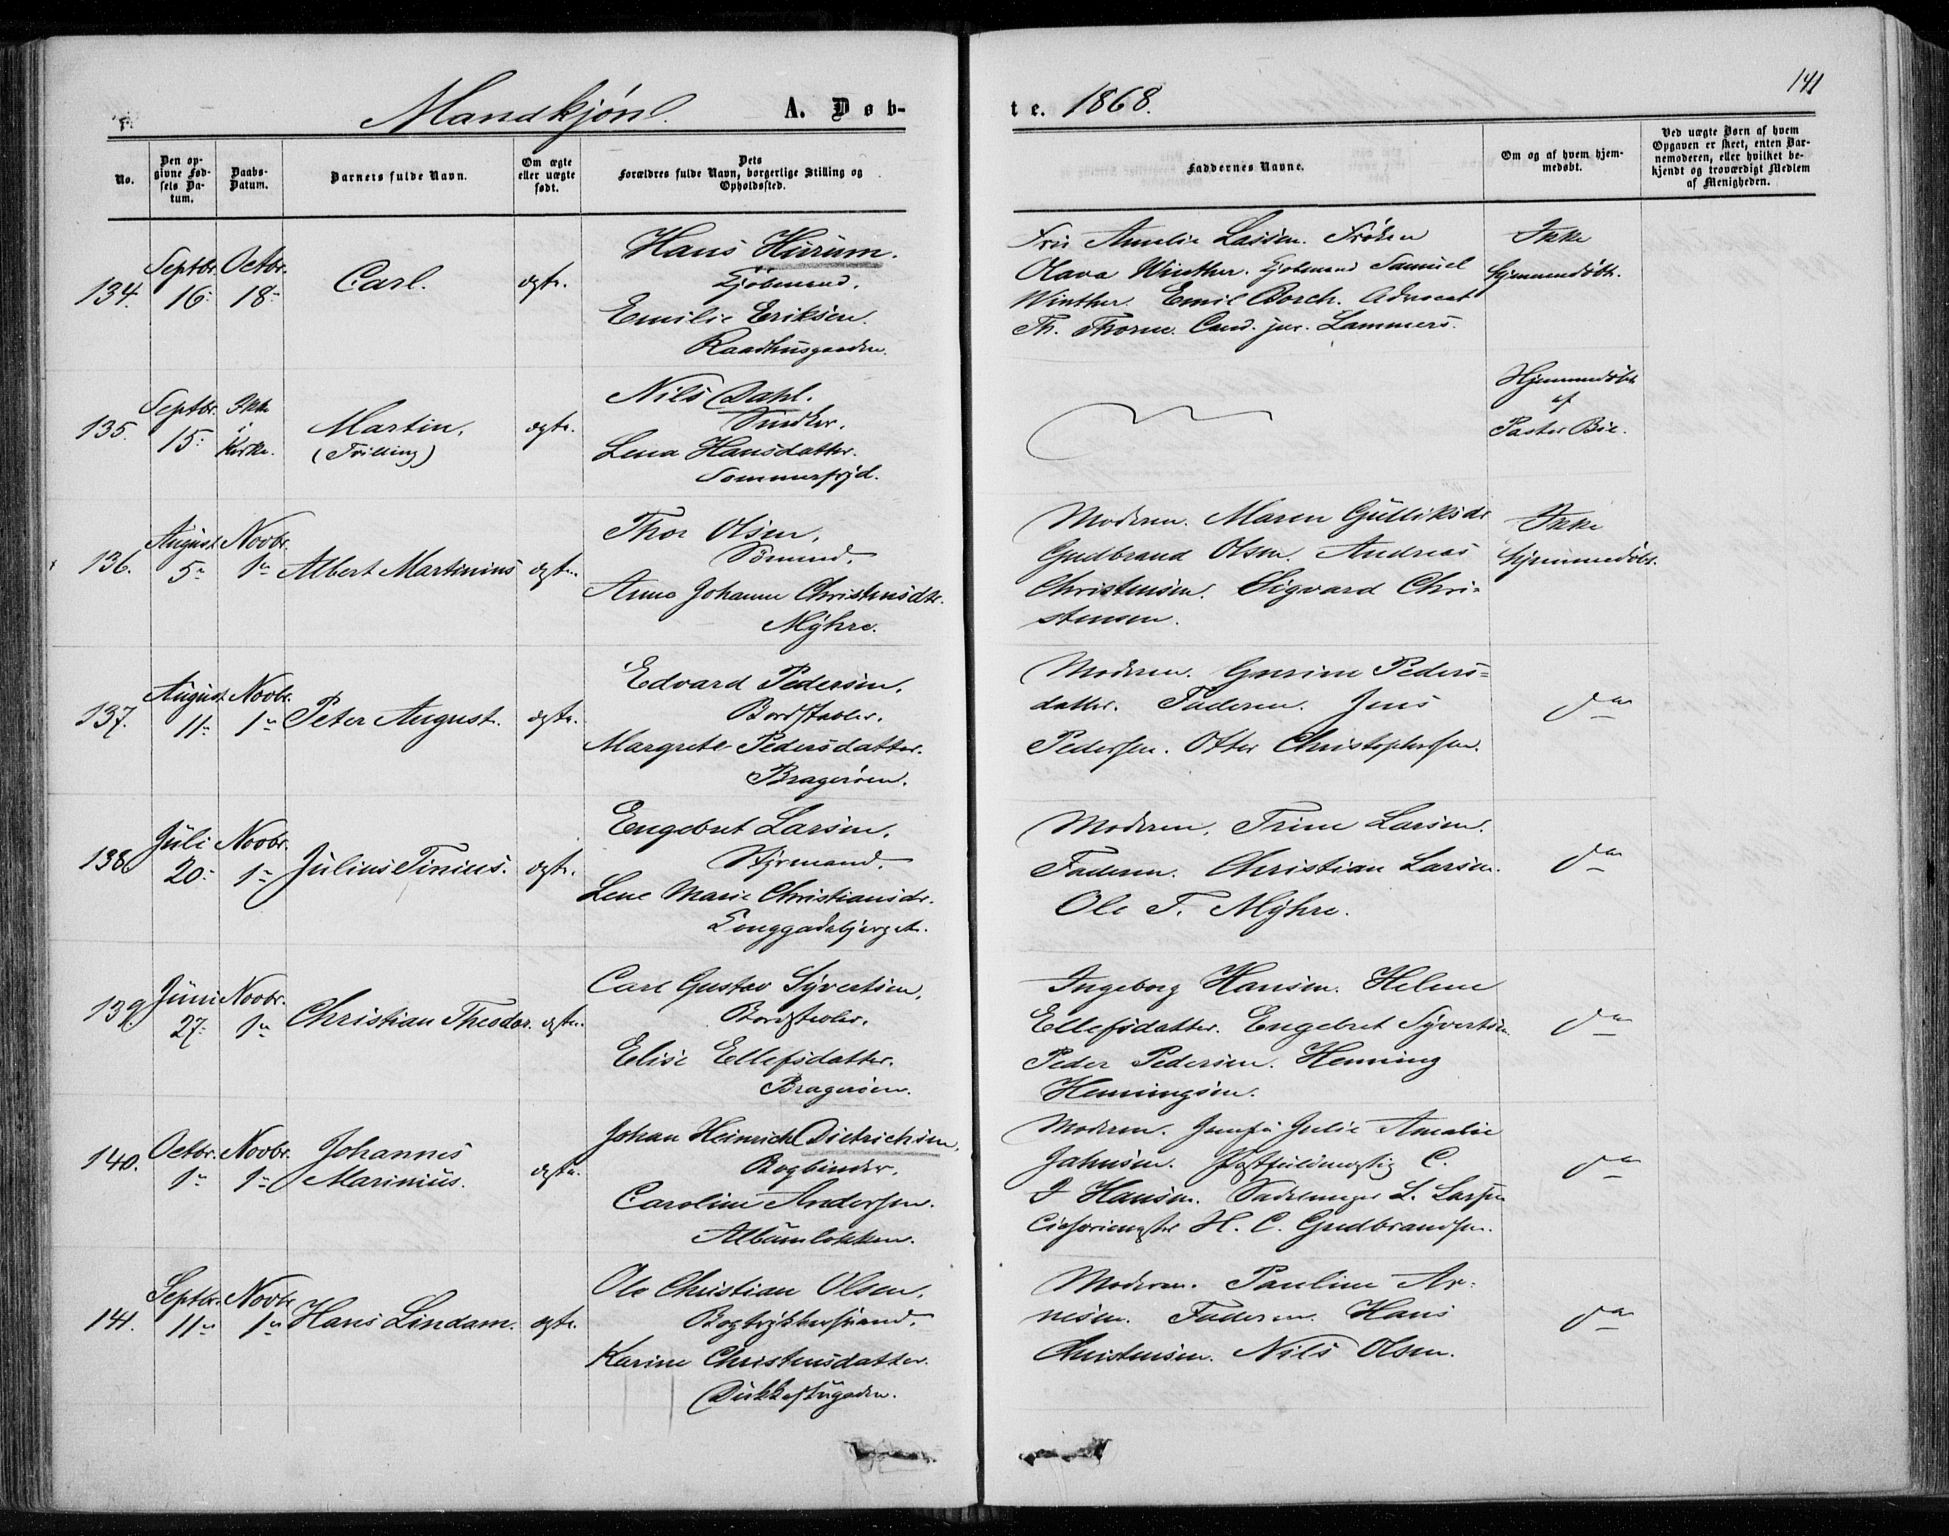 141
Mandkjøn. A. Døb-
te. 1868.
No.
Den op-
givne Fød-
sels Da-
tum.
Daabs-
Datum.
Barnets fulde Navn.
Om ægte
eller uægte
født.
Dets
Forældres fulde Navn, borgerlige Stilling og
Opholdssted.
Faddernes Navne.
Om og af hvem hjem-
medøbt.
Ved uægte Børn af hvem
Opgaven er skeet, enten Bar-
nemoderen, eller hvilket be-
kjendt og troværdigt Medlem
af Menigheden.
134. Septbr. 16. Octbr. 18. Carl. ægte.
Hans Hurum.
Kjøbmand.
Emilie Eriksen.
Raadhusgaden.
Amelie Lassen. Frøken
Olava Winther. Kjøbmand Samuel
Winther. Emil Borch. Advocat
Th. Thorne. Cand. jur. Lammers.
Ikke
hjemmedøbt.
135. Septbr. 15. Ikke i Kirke. Martin.
(Trilling) ægte.
Nils Dahl.
Snedker.
Lena Hansdatter.
Sommerfryd.
Hjemmedøbt
af
Pastor Bøe.
136. August 5. Novbr. 1. Albert Martinius ægte.
Thor Olsen.
Sømand.
Anne Johanne Christensdtr.
Myhre.
Moderen. Maren Gulliksdr
Gudbrand Olsen Andreas
Christensen. Sigvard Chri-
stensen.
Ikke
hjemmedøbt.
137. August 11. Novbr. 1. Peter August. ægte.
Edvard Pedersen.
Bordstabler.
Margrete Pedersdatter.
Bragerøen.
Moderen. Gurine Peders-
datter. Faderen. Jens
Pedersen. Otter Christophersen.
do
138. Juli 20. Novbr. 1. Julius Tinius. ægte.
Engebret Larsen.
Styrmand.
Lene Marie Christiansdr.
Enggadebjerget.
Moderen. Trine Larsen.
Faderen. Christian Larsen.
Ole T. Myhre.
do
139. Juni 27. Novbr. 1. Christian Theodor. ægte.
Carl Gustav Syvertsen.
Bordstabler.
Elise Ellefsdatter.
Bragerøen.
Ingeborg Hansen. Helene
Ellefsdatter. Engebret Syvertsen
Peder Pedersen. Henning
Henningsen.
do
140. Octbr. 1. Novbr. 1. Johannes
Marinius. ægte.
Johan Heinrich Dietrichsen.
Bogbinder.
Caroline Andersen.
Albumløkken.
Moderen. Jomfru Julie Amalie
Jahnsen. Postfuldmægtig C.
J Hansen. Sadelmager L. Larsen
H. C. Gudbrandsen.
do
141. Septbr. 11. Novbr. 1. Hans Lindam. ægte.
Ole Christian Olsen.
Bogtrykkersvend.
Karine Christensdatter.
Moderen. Pauline Ar-
nesen. Faderen. Hans
Christensen. Nils Olsen.
do